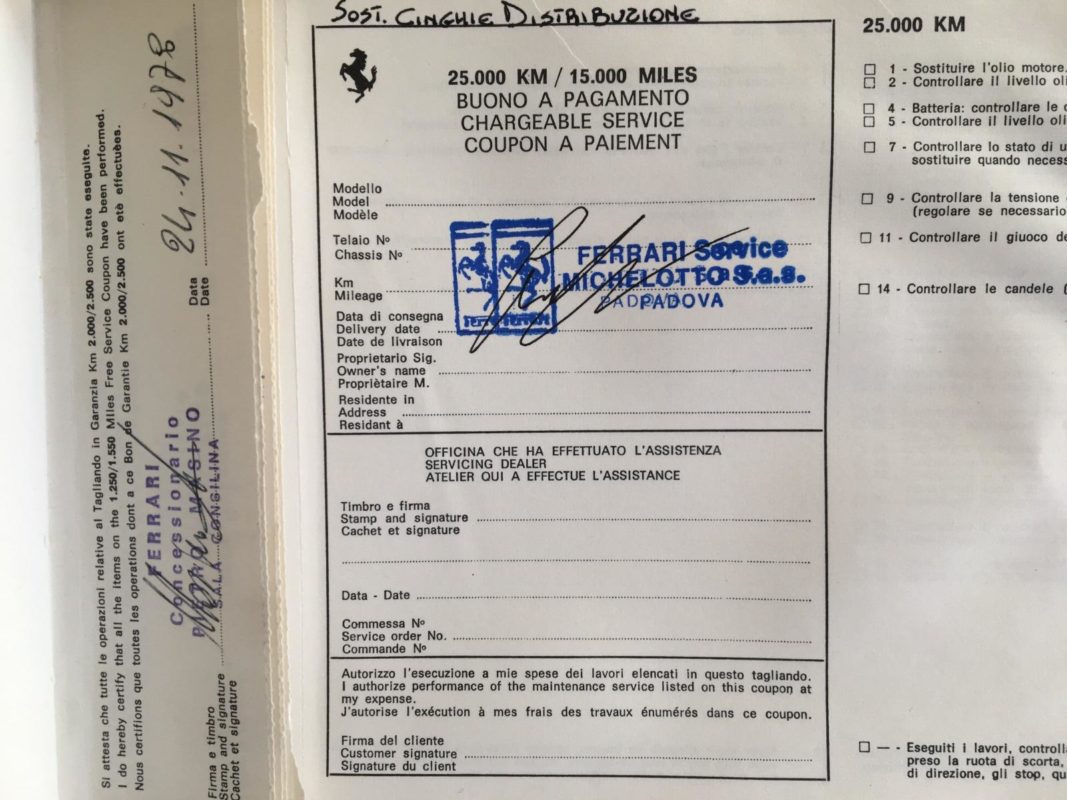 Si attesta che tutte le operazioni relative al Tagliando in Garanzia Km 2.000/2.500 sono state eseguite.
I do hereby certify that all the items on the 1.250/1.550 Miles Free Service Coupon have been performed.
Nous certifions que toutes les operations dont a ce Bon de Garantie Km 2.000/2.500 ont etè effectuèes.
24.11.1978
Data
Date
FERRARI
Concessionario
PIETRO MASINO
SALA CONSILINA
Firma e timbro
Stamp and signature
Cachet et signature
SOST. CINGHIE DISTRIBUZIONE
25.000 KM / 15.000 MILES
BUONO A PAGAMENTO
CHARGEABLE SERVICE
COUPON A PAIEMENT
Modello
Model
Modèle
Telaio Nº
Chassis Nº
Km
Mileage
Data di consegna
Delivery date
Date de livraison
Proprietario Sig.
Owner's name
Propriètaire M.
Residente in
Address
Residant à
FERRARI Service
MICHELOTTO S.a.s.
PADOVA
OFFICINA CHE HA EFFETTUATO L'ASSISTENZA
SERVICING DEALER
ATELIER QUI A EFFECTUE L'ASSISTANCE
Timbro e firma
Stamp and signature
Cachet et signature
Data - Date
Commessa Nº
Service order No.
Commande Nº
Autorizzo l'esecuzione a mie spese dei lavori elencati in questo tagliando.
I authorize performance of the maintenance service listed on this coupon at
my expense.
J'autorise l'exécution à mes frais des travaux énumérés dans ce coupon.
Firma del cliente
Customer signature
Signature du client
25.000 KM
1 - Sostituire l'olio motore.
2 - Controllare il livello oli
4 - Batteria: controllare le
5 - Controllare il livello oli
7 - Controllare lo stato di u
sostituire quando necess
9 - Controllare la tensione
(regolare se necessario
11 - Controllare il giuoco de
14 - Controllare le candele (
— - Eseguiti i lavori, controll
preso la ruota di scorta,
di direzione, gli stop, qu